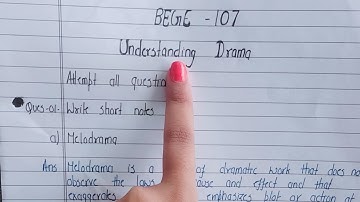 BEGE - 107
Understanding Drama
Attempt all question
Ques-01- Write short notes
a) Melodrama
Ans Melodrama is a of dramatic work that does no
observe the laws ause and effect and that
exaggerates emphasizes plot or action at